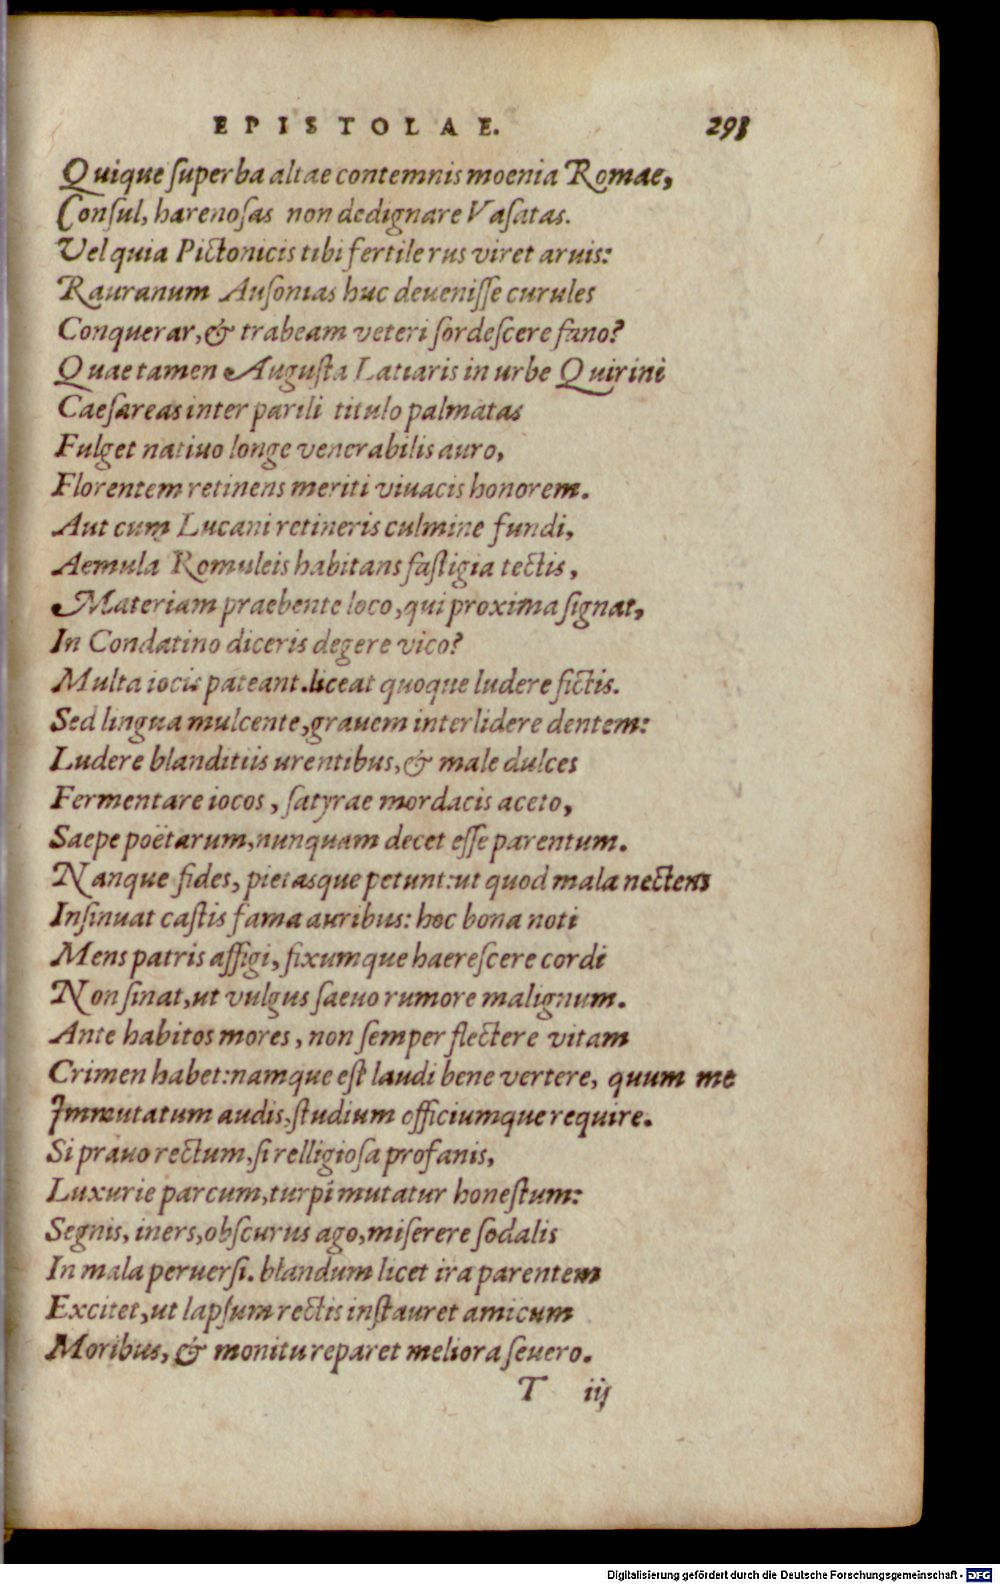 EPISTOLAE. 293
Quique ſuperba altae contemnis moenia Romae,
Conſul, harenoſas non dedignare Vaſatas.
Vel quia Pictonicis tibi fertile rus viret aruis:
Rauranum Auſonias huc deueniſſe curules
Conquerar, & trabeam veteri ſordeſcere fano?
Quae tamen Auguſta Latiaris in urbe Quirini
Caeſareas inter parili titulo palmatas
Fulget natiuo longe venerabilis auro,
Florentem retinens meriti viuacis honorem.
Aut cum Lucani retineris culmine fundi,
Aemula Romuleis habitans faſtigia tectis,
Materiam praebente loco, qui proxima ſignat,
In Condatino diceris degere vico?
Multa iocis pateant. liceat quoque ludere fictis.
Sed lingua mulcente, grauem interlidere dentem:
Ludere blanditiis urentibus, & male dulces
Fermentare iocos, ſatyrae mordacis aceto,
Saepe poëtarum, nunquam decet eſſe parentum.
Nanque fides, pietasque petunt: ut quod mala nectens
Inſinuat caſtis fama auribus: hoc bona noti
Mens patris affigi, fixumque haereſcere cordi
Non ſinat, ut vulgus ſaeuo rumore malignum.
Ante habitos mores, non ſemper flectere vitam
Crimen habet: namque eſt laudi bene vertere, quum me
Immutatum audis, ſtudium officiumque require.
Si prauo rectum, ſi relligioſa profanis,
Luxurie parcum, turpi mutatur honeſtum:
Segnis, iners, obſcurus ago, miſerere ſodalis
In mala peruerſi. blandum licet ira parentem
Excitet, ut lapſum rectis inſtauret amicum
Moribus, & monitu reparet meliora ſeuero.
T iij
Digitalisierung gefördert durch die Deutsche Forschungsgemeinschaft - DFG